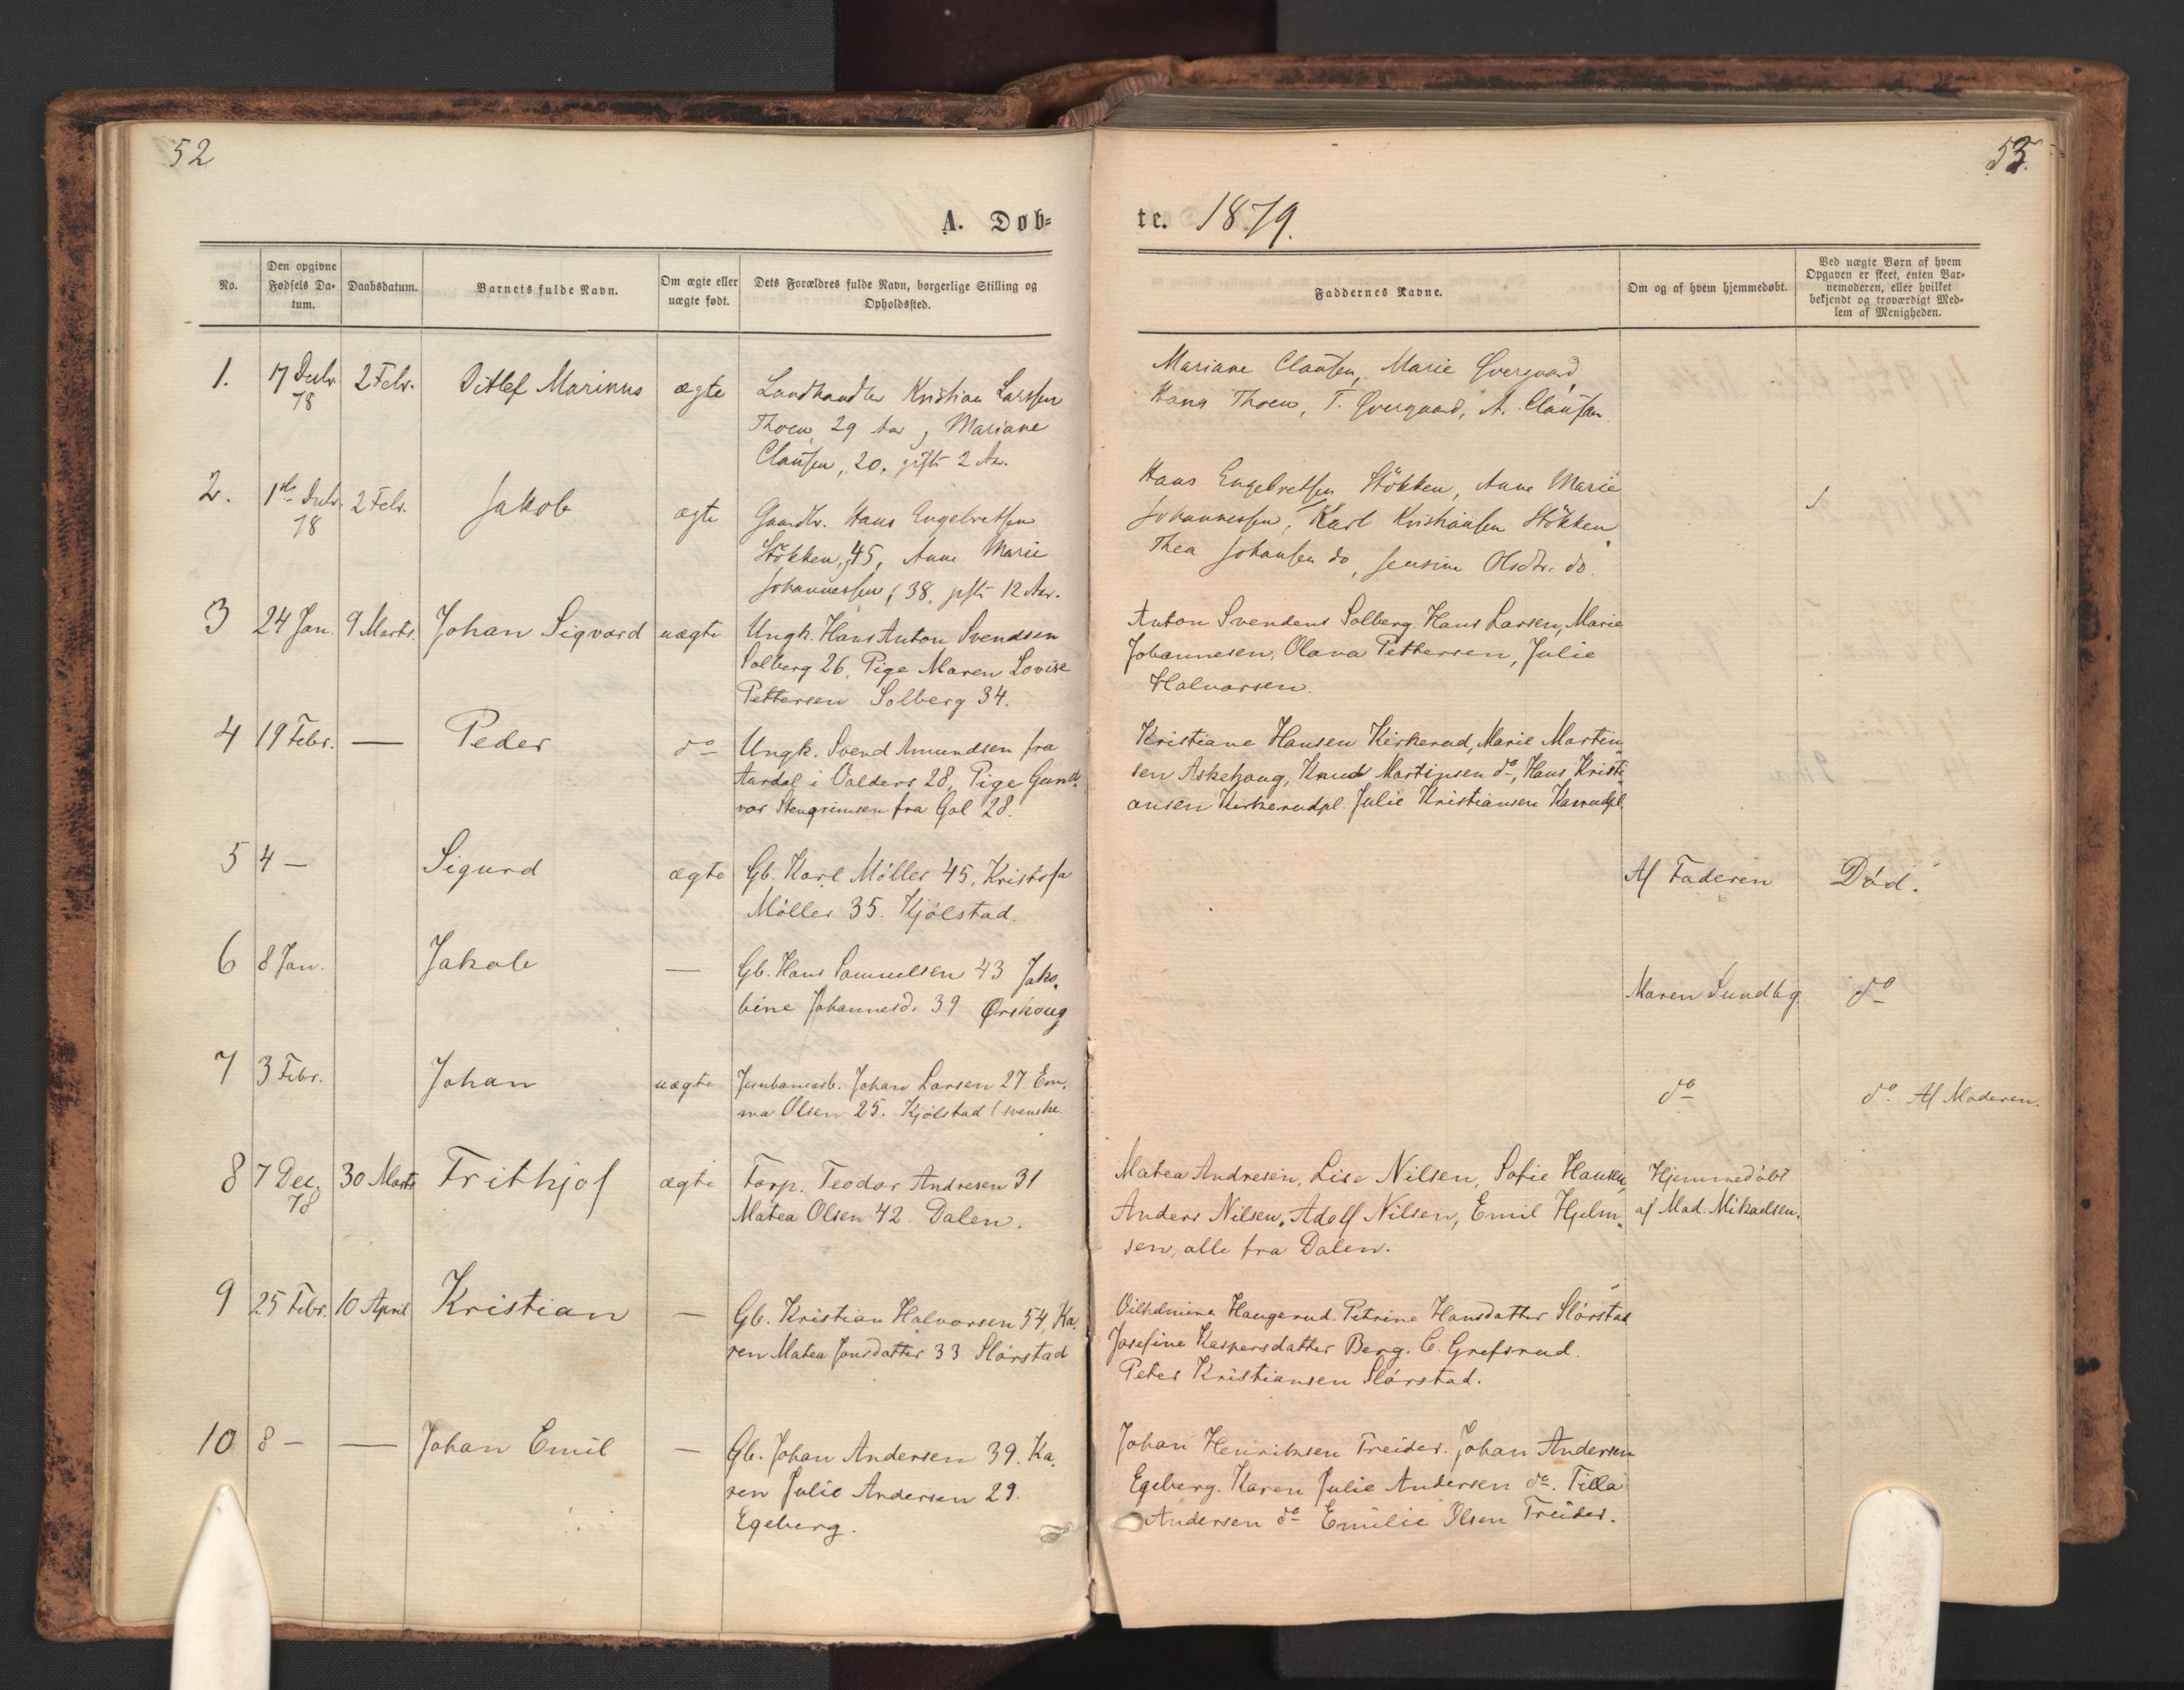 52
53.
A. Døb=
te. 1879.
No.
Den opgivne Fødsels Da=
tum.
Daabsdatum.
Barnets fulde Navn.
Om ægte eller
uægte født.
Dets Forældres fulde Navn, borgerlige Stilling og
Opholdssted.
Faddernes Navne.
Om og af hvem hjemmedøbt.
Ved uægte Børn af hvem
Opgaven er skeet, enten Bar=
nemoderen, eller hvilket
bekjendt og troværdigt Med=
lem af Menigheden.
1. 17 Decbr. 78 2 Febr. Ditlef Marinus ægte
Landhandler Kristian Larssen
Thoen, 29 Aar, Mariane
Clausen, 20, gift 2 Ar.
Mariane Clausen, Marie Qvergaard,
Hans Thoen, T. Qvergaard, A. Clausen
2. 1ste Decbr. 78 2 Febr. Jakob ægte
Gaardbr. Hans Engebretsen
Stökken, 45, Anne Marie
Johannessen, 38, gift 12 Aar.
Hans Engebretsen Stökken, Anne Marie
Johannessen, Karl Kristiansen Stökken,
Thea Johansen do, Jensine Olsdtr. do.
3 24 Jan. 9 Marts. Johan Sigvard uægte
Ungk. Hans Anton Svendsen
Solberg 26, Pige Maren Lovise
Pettersen Solberg 34.
Anton Svendsens Solberg, Hans Larsen, Marie
Johannesen, Olava Pettersen, Julie
Halvorsen.
4 19 Febr. — Peder do
Ungk. Svend Amundsen fra
Aurdal i Valders 28, Pige Gund,
vor Stengrimsen fra Gol 28.
Kristiane Hansen Kirkerud, Marie Martin,
sen Askehaug, Knud Martinsen do, Hans Kristi
ansen Kirkerudpl. Julie Kristiansen
5 4 — Sigurd ægte
Gb. Karl Möller 45, Kristofa
Möller 35. Kjölstad.
Af Faderen
Död.
6 8 Jan. Jakob —
Gb. Hans Samuelsen 43 Jako,
bine Johannesd. 39 Ørskoug
Maren Sundbg.
do
7 3 Febr. Johan uægte
Jernbanearb. Johan Larsen 27 Em,
ma Olsen 25. Kjölstad (svenske.
do
do Af Moderen.
8 7 Dec. 78 30 Marts Frithjof ægte
Torp. Teodor Andresen 31
Matea Olsen 42. Dalen.
Matea Andresen, Lise Nilsen, Sofie Hansen,
Anders Nilsen, Adolf Nilsen, Emil Hjelm,
sen, alle fra Dalen.
Hjemmedöbt
af Mad. Mikaelsen.
9 25 Febr. 10 April Kristian —
Gb. Kristian Halvorsen 54, Ka,
ren Matea Jonsdatter 33 Slörstad
Vilhelmine Haugerud. Petrine Hansdatter Slörstad
Josefine Kaspersdatter Berg. C. Grefsrud.
Peter Kristiansen Slörstad.
10 8 — — Johan Emil —
Gb. Johan Andersen 39. Ka,
ren Julie Andersen 29.
Egeberg.
Johan Henriksen Treider. Johan Andersen
Egeberg. Karen Julie Andersen do. Tilla
Andersen do Emilie Olsen Treider.